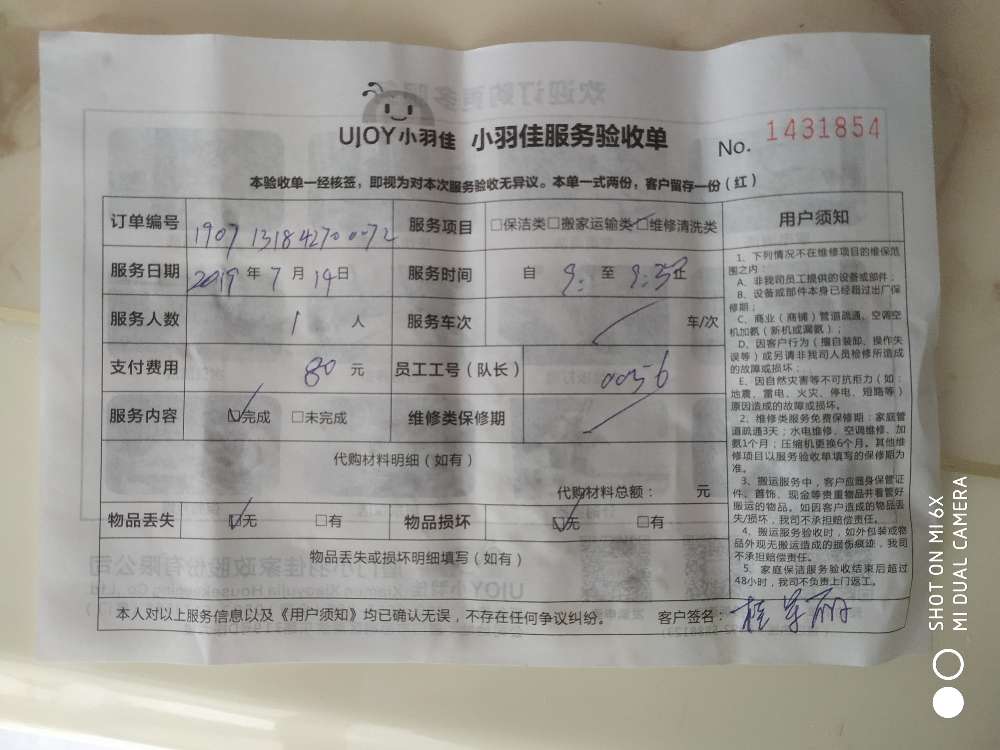 UJOY小羽佳 小羽佳服务验收单
No. 1431854
本验收单一经核签，即视为对本次服务验收无异议。本单一式两份，客户留存一份（红）
订单编号 1907 1318 4270 0072 服务项目 □保洁类□搬家运输类□维修清洗类
服务日期 2019年7月14日 服务时间 自 9: 至 9:30止
服务人数 1 人 服务车次 车/次
支付费用 80 元 员工工号（队长） 0056
服务内容 ☑完成 □未完成 维修类保修期
代购材料明细（如有）
代购材料总额： 元
物品丢失 ☑无 □有 物品损坏 ☑无 □有
物品丢失或损坏明细填写（如有）
本人对以上服务信息以及《用户须知》均已确认无误，不存在任何争议纠纷。 客户签名：
用户须知
1、下列情况不在维修项目的维保范
围之内：
A、非我司员工提供的设备或部件；
B、设备或部件本身已经超过出厂保
修期；
C、商业（商铺）管道疏通、空调空
机加氨（新机或漏氨）；
D、因客户行为（擅自装卸、操作失
误等）或另请非我司人员检修所造成
的故障或损坏；
E、因自然灾害等不可抗拒力（如：
地震、雷电、火灾、停电、短路等）
原因造成的故障或损坏。
2、维修类服务免费保修期：家庭管
道疏通3天；水电维修、空调维修、加
氨1个月；压缩机更换6个月。其他维
修项目以服务验收单填写的保修期为
准。
3、搬运服务中，客户应随身保管证
件、首饰、现金等贵重物品并看管好
搬运的物品。如因客户造成的物品丢
失/损坏，我司不承担赔偿责任。
4、搬运服务验收时，如外包装或物
品外观无搬运造成的损伤痕迹，我司
不承担赔偿责任。
5、家庭保洁服务验收结束后超过
48小时，我司不负责上门返工。
SHOT ON MI 6X
MI DUAL CAMERA